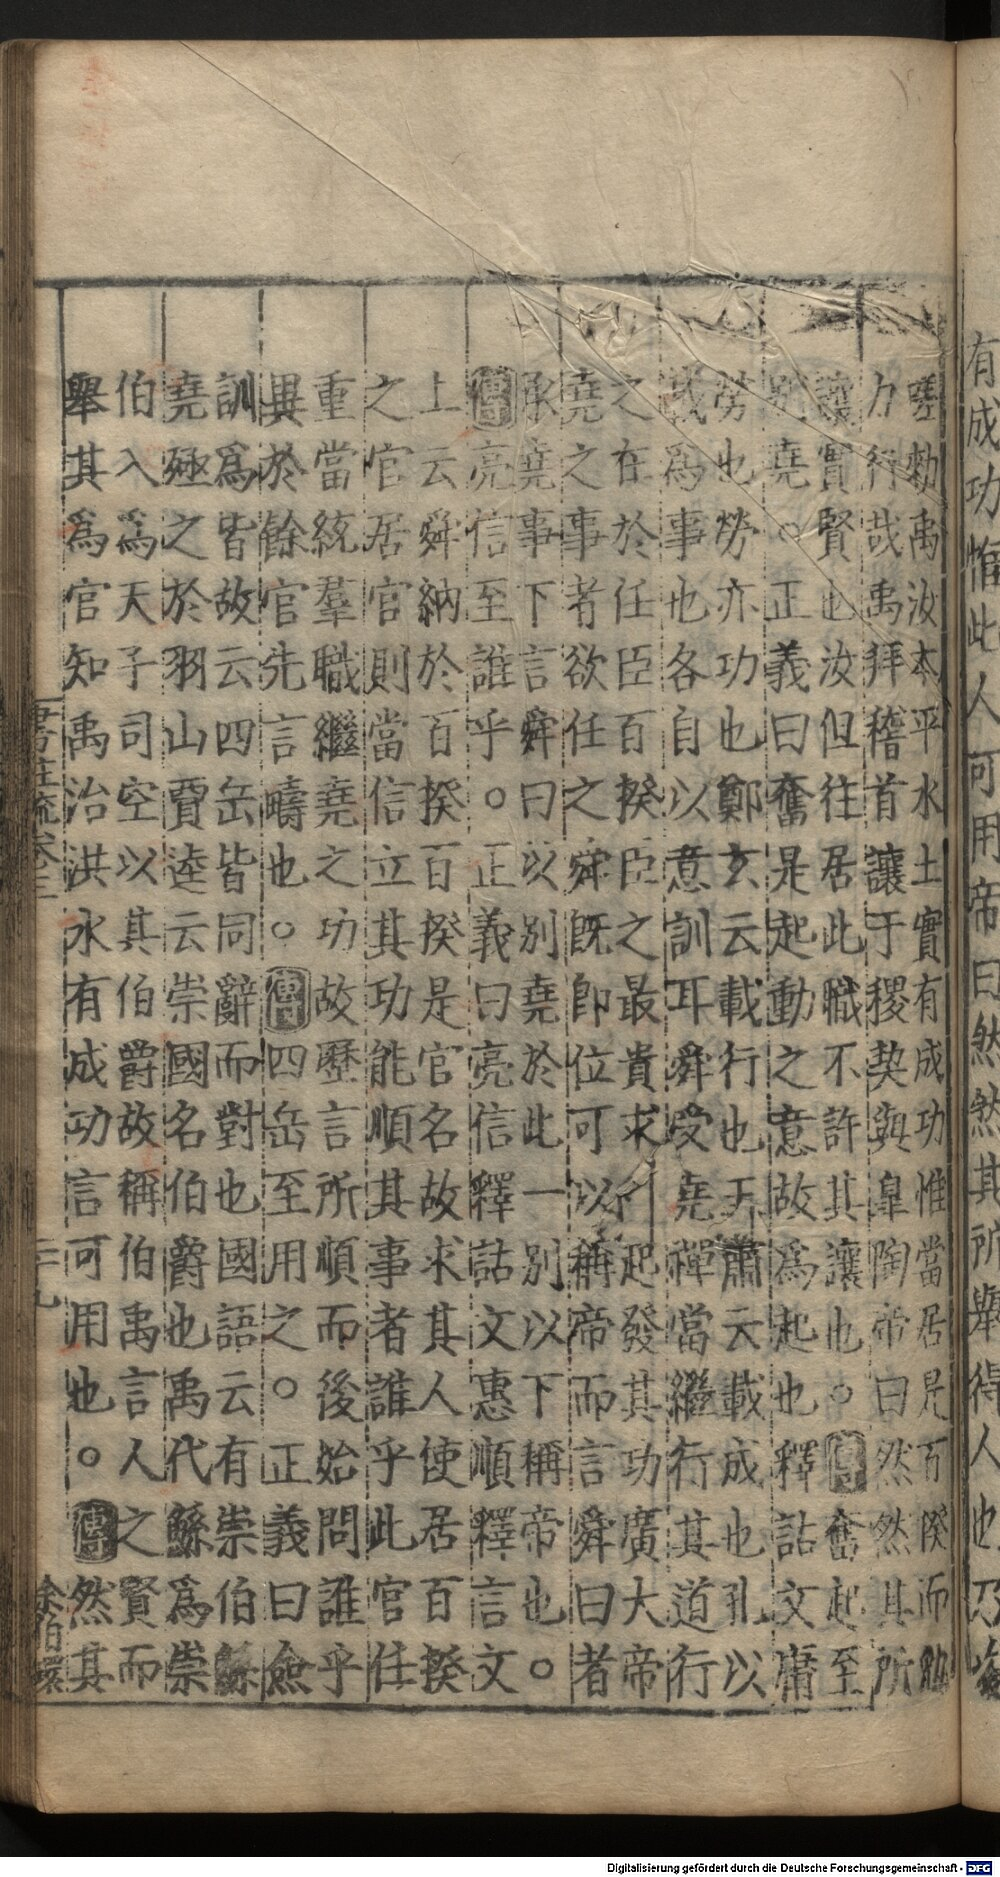 有成功惟此人可用帝曰然然其所舉得人也乃
嗟勑禹汝本平水土實有成功惟當居是百揆而勉
力行哉禹拜稽首讓于稷契與皐陶帝曰然然其所
讓實賢也汝但往居此職不許其讓也○傳奮起至
別堯○正義曰奮是起動之意故為起也釋詁文庸
勞也勞亦功也鄭玄云載行也王肅云載成也孔以
載為事也各自以意訓耳舜受堯禪當繼行其道行
之在於任臣百揆臣之最貴求个起發其功廣大帝
堯之事者欲任之舜既即位可以稱帝而言舜曰者
承堯事下言舜曰以別堯於此一別以下稱帝也○
傳亮信至誰乎○正義曰亮信釋詁文惠順釋言文
上云舜納於百揆百揆是官名故求其人使居百揆
之官居官則當信立其功能順其事者誰乎此官任
重當統羣職繼堯之功故歷言所順而後始問誰乎
異於餘官先言疇也○傳四岳至用之○正義曰僉
訓為皆故云四岳皆同辭而對也國語云有崇伯鯀
堯殛之於羽山賈逵云崇國名伯爵也禹代鯀為崇
伯入為天子司空以其伯爵故稱伯禹言人之賢而
舉其為官知禹治洪水有成功言可用也○傳然其
書註疏卷三
二十九
余伯環
Digitalisierung gefördert durch die Deutsche Forschungsgemeinschaft - DFG